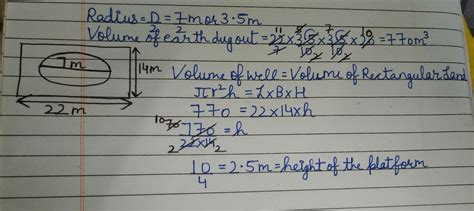 Radius = D/2 = 7/2 m or 3.5m
Volume of earth dug out = 22/7 × 35/10 × 35/10 × 20 = 770m³
7m
14m
22m
Volume of well = Volume of Rectangular Land
πr²h = L×B×H
770 = 22×14×h
770/22×14 = h
10/4 = 2.5m = height of the platform